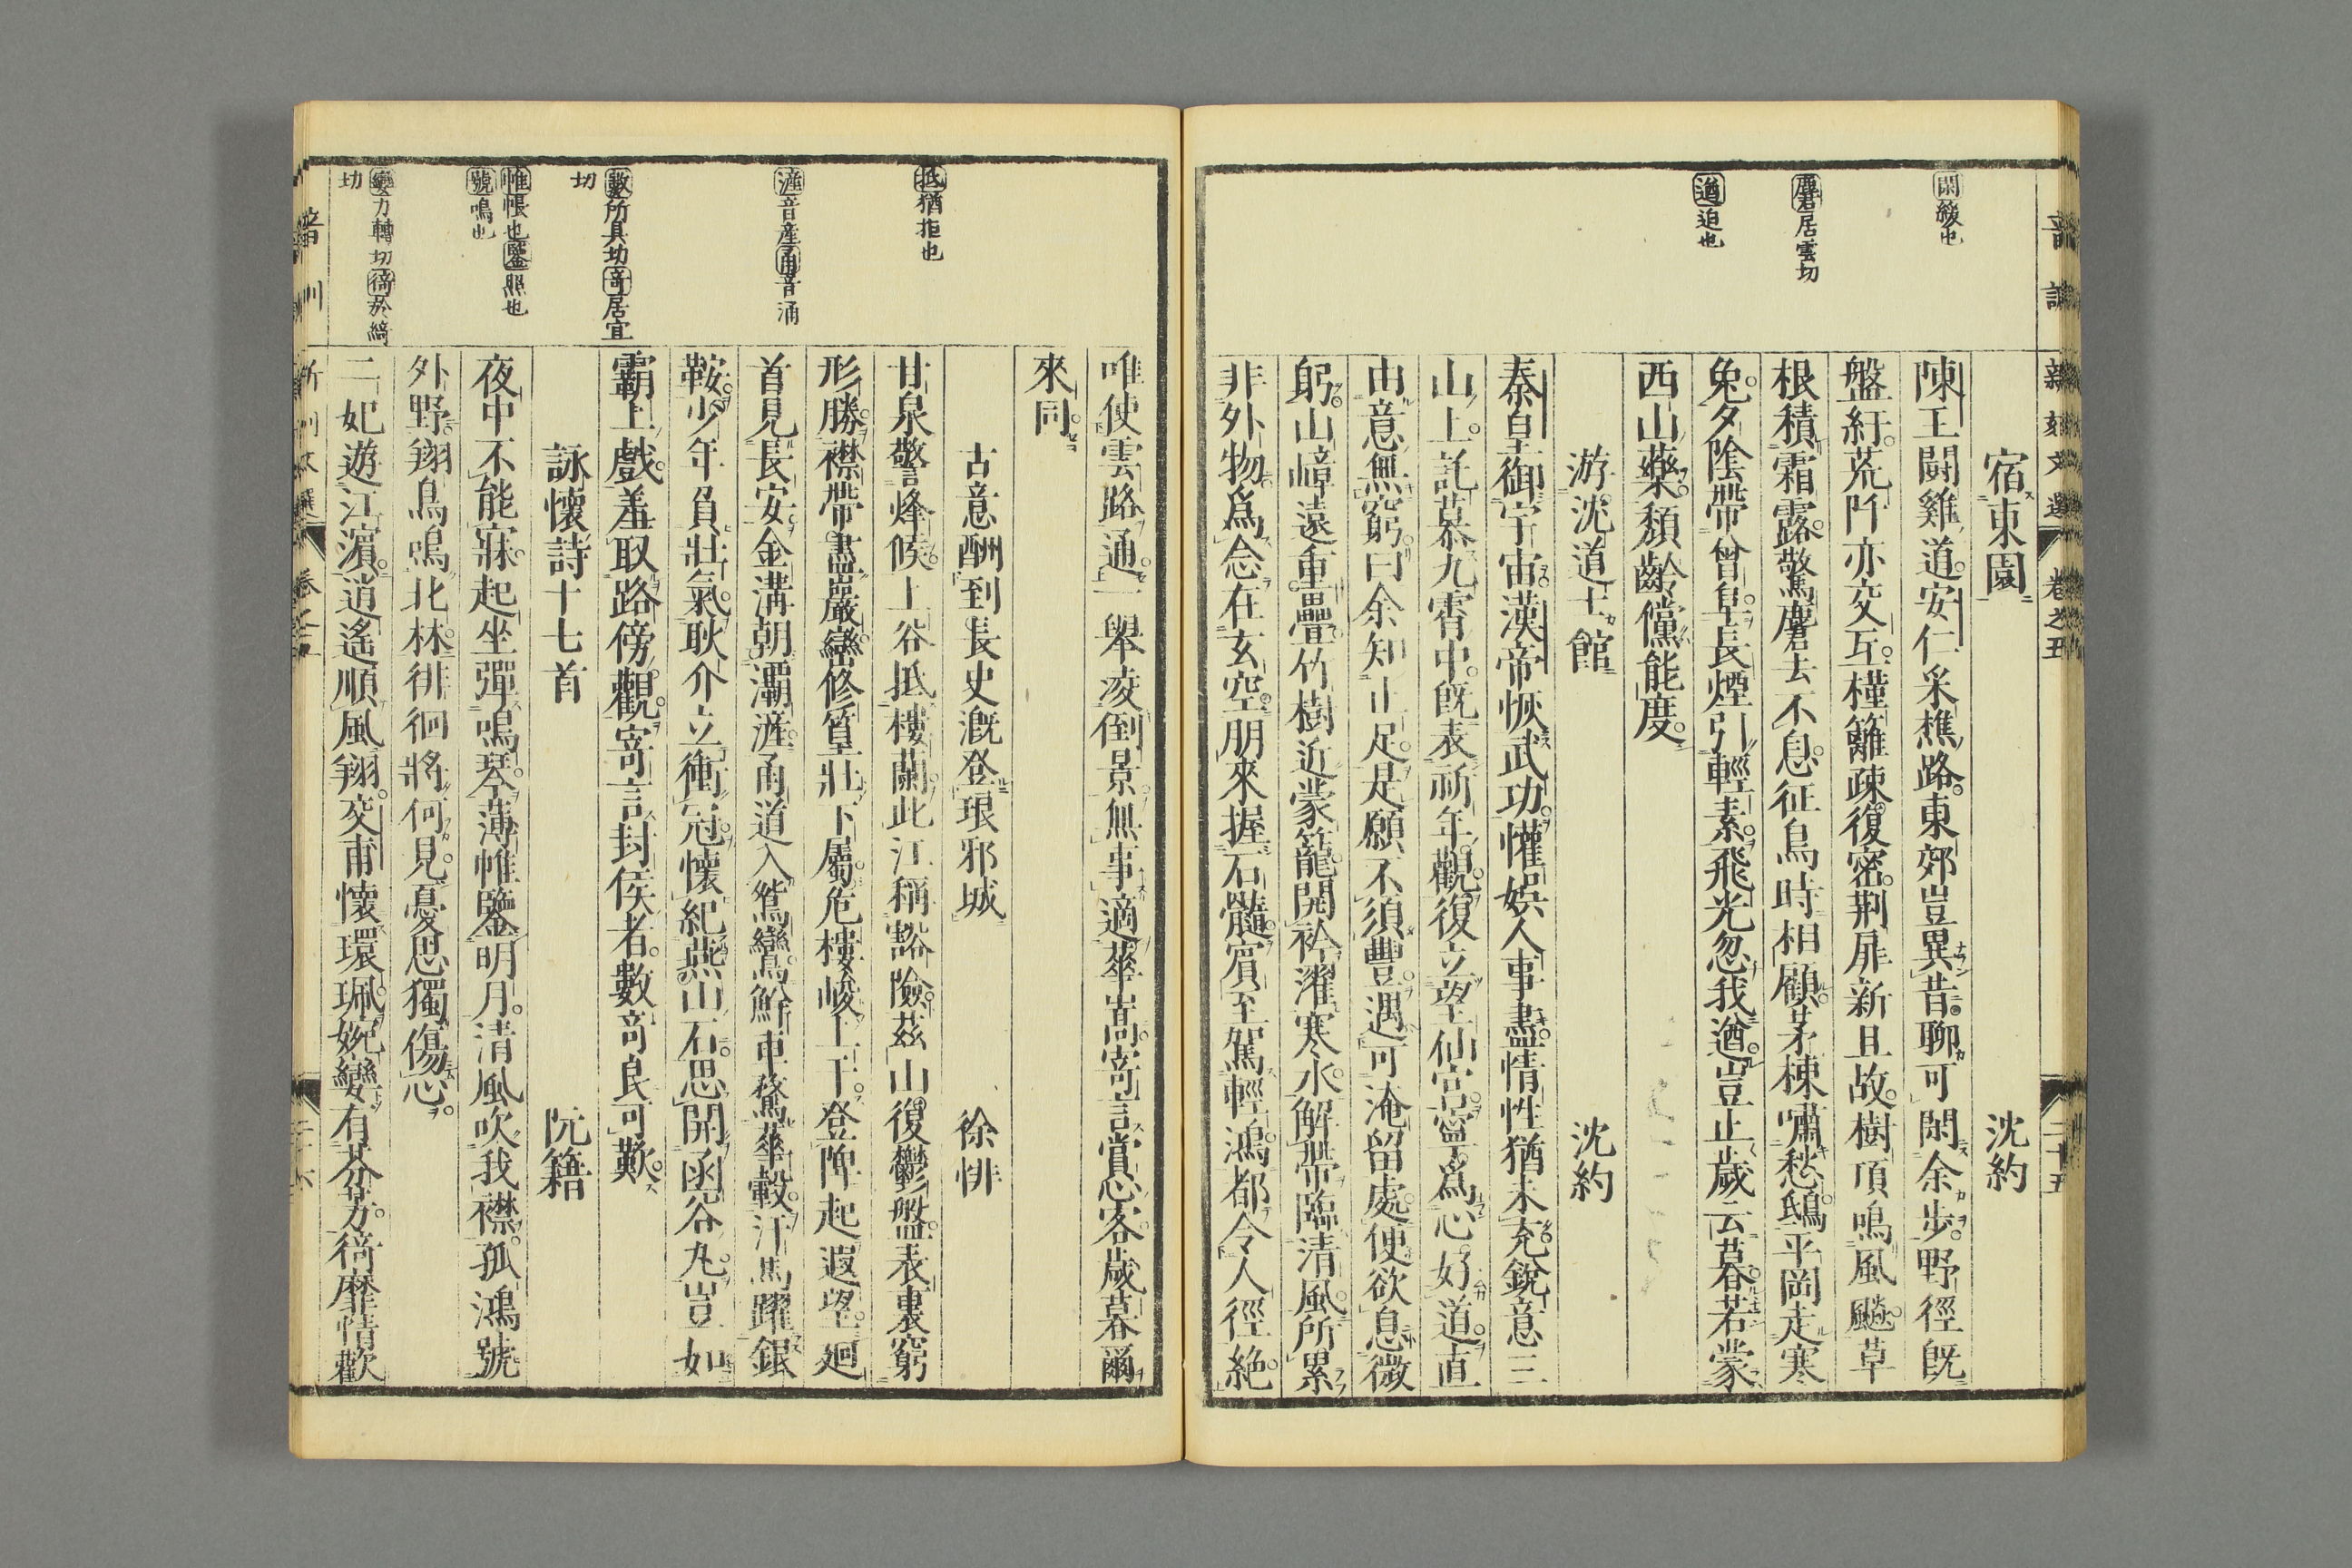 宿東園　沈約
陳王闘雞道安仁采樵路東郊豈異昔聊可閑余步野徑既
盤紆荒阡亦交互槿籬疎復密荆扉新且故樹頂鳴風飈草
根積霜露驚麏去不息征鳥時相顧茅棟嘯愁鴟平岡走寒
兔夕陰帶曾阜長煙引輕素飛光忽我遒豈止歲云暮若蒙
西山藥頹齡儻能度
游沈道士館　沈約
秦皇御宇宙漢帝恢武功懽娯人事盡情性猶未充銳意三
山上託慕九霄中既表祈年觀復立望仙宮寧爲心好道直
由意無窮曰余知止足是願不須豐遇可淹留處便欲息微
躬山嶂遠重疊竹樹近蒙籠開衿濯寒水解帶臨清風所累
非外物爲念在玄空朋來握石髓賔至駕輕鴻都令人徑絶
閑緩也
麏居雲切
遒迫也
新刻文選　卷之五　二十五
唯使雲路通一舉凌倒景無事適華嵩寄言賞心客歲暮爾
來同
古意酬到長史漑登琅邪城　徐悱
甘泉警烽候上谷抵樓蘭此江稱豁險茲山復鬱盤表裏窮
形勝襟帶盡巖巒修篁壯下屬危樓峻上干登陴起遐望廻
首見長安金溝朝灞滻甬道入鴛鸞鮮車騖華轂汗馬躍銀
鞍少年負壯氣耿介立衝冠懷紀燕山石思開函谷丸豈如
霸上戲羞取路傍觀寄言封侯者數奇良可歎
詠懷詩十七首　阮籍
夜中不能寐起坐彈鳴琴薄帷鑒明月清風吹我襟孤鴻號
外野翔鳥鳴北林徘徊將何見憂思獨傷心
二妃遊江濵逍遙順風翔交甫懷環珮婉孌有芬芳猗靡情歡
抵猶拒也
滻音産甬音涌
數所具切奇居宜
切
帷帳也鑒照也
號鳴也
孌力轉切猗於綺
切